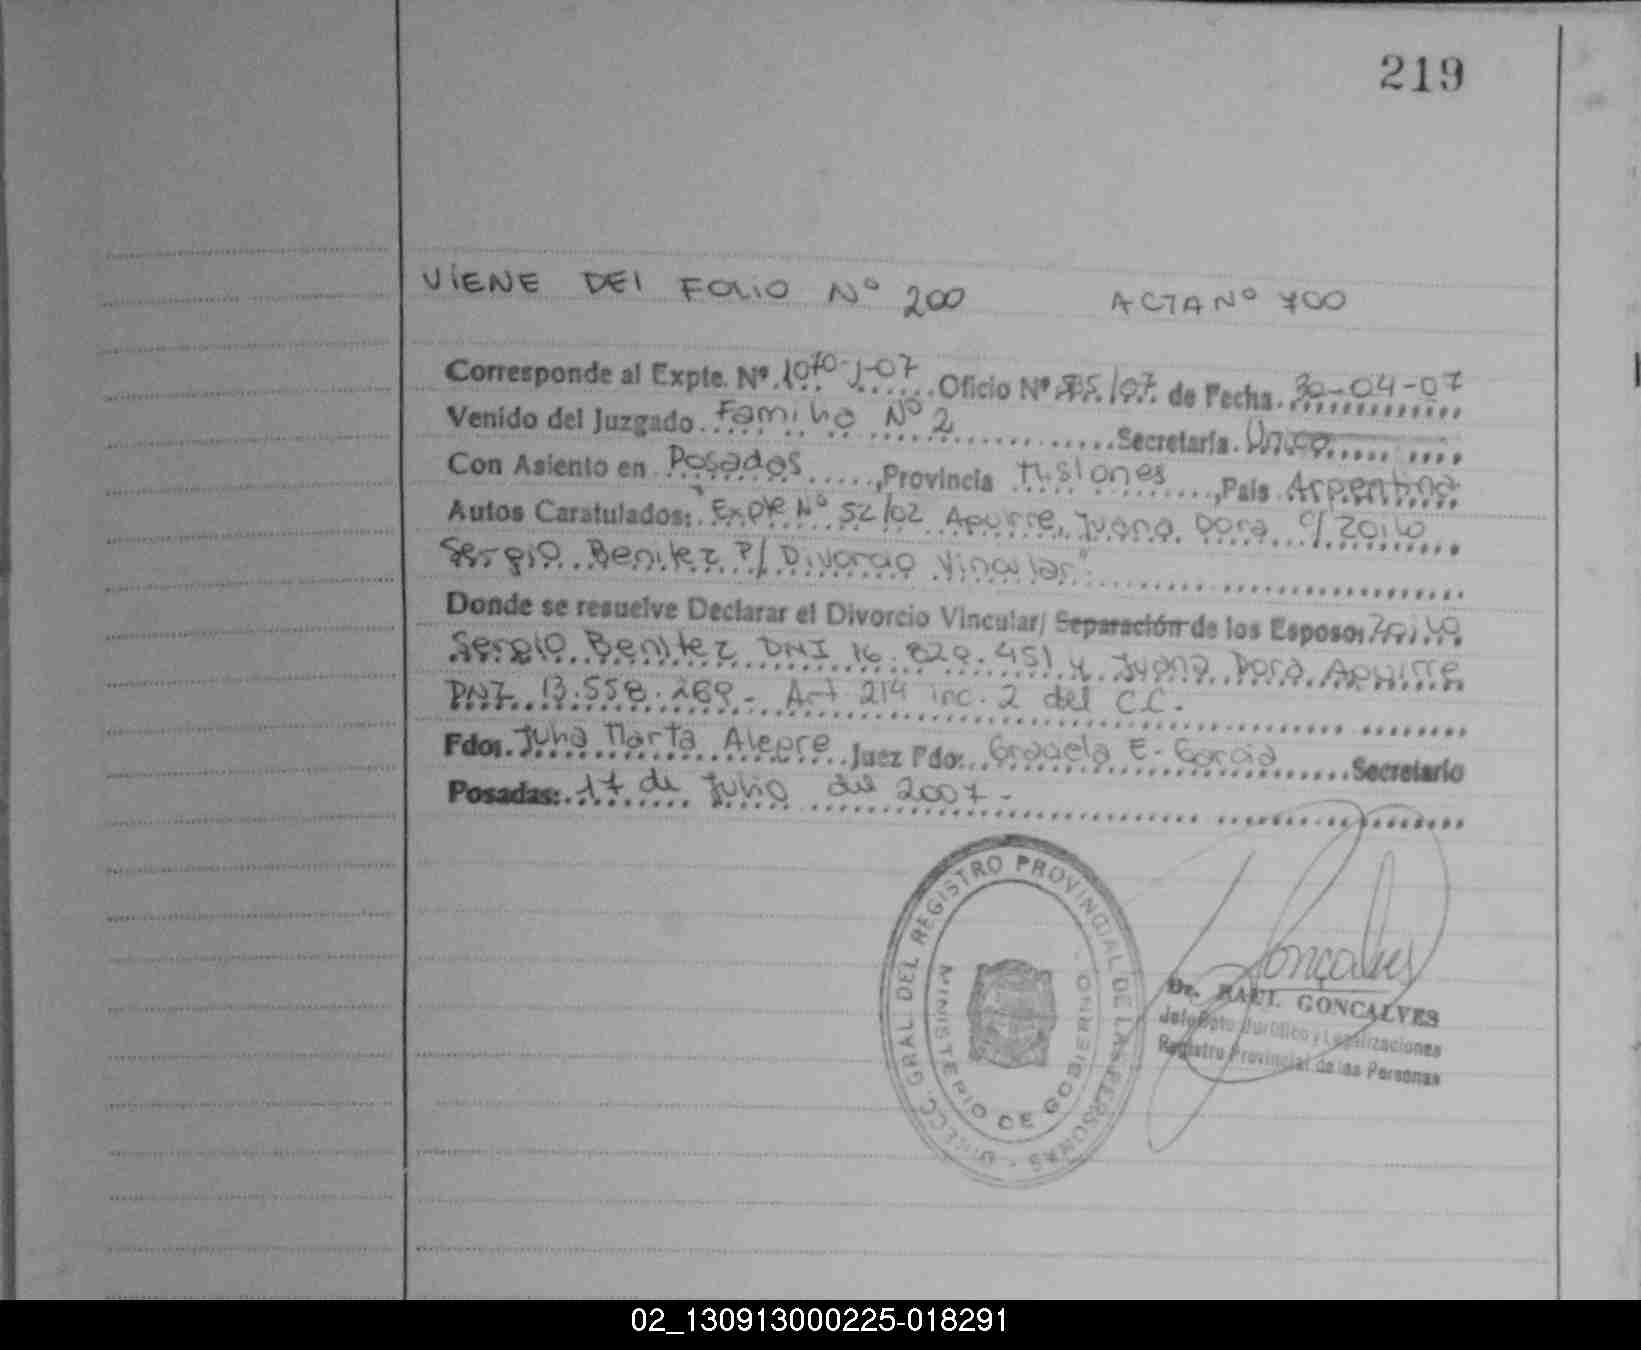 219
VIENE DEL FOLIO Nº 200 ACTA Nº 700
Corresponde al Expte. Nº. 1070-J-07 Oficio Nº 575/07 de Fecha. 30-04-07
Venido del Juzgado. Familia Nº 2 Secretaría. Unica
Con Asiento en Posadas, Provincia Misiones, País Argentina
Autos Caratulados: "Expte Nº 52/02 Aguirre, Juana Dora c/ Zoilo
Sergio Benitez P/ Divorcio Vincular"
Donde se resuelve Declarar el Divorcio Vincular/ Separación de los Esposos Zoilo
Sergio Benitez DNI 16.829.451 y Juana Dora Aguirre
DNI 13.558.269.- Art 214 inc. 2 del C.C.
Fdo: Julia Marta Alegre Juez Fdo: Graciela E. Garcia Secretario
Posadas: 17 de Julio del 2007.-
DIRECC. GRAL. DEL REGISTRO PROVINCIAL DE LAS PERSONAS
MINISTERIO DE GOBIERNO
Gonçalves
Dr. RAUL GONCALVES
Jefe Dpto Jurídico y Legalizaciones
Registro Provincial de las Personas
02_130913000225-018291